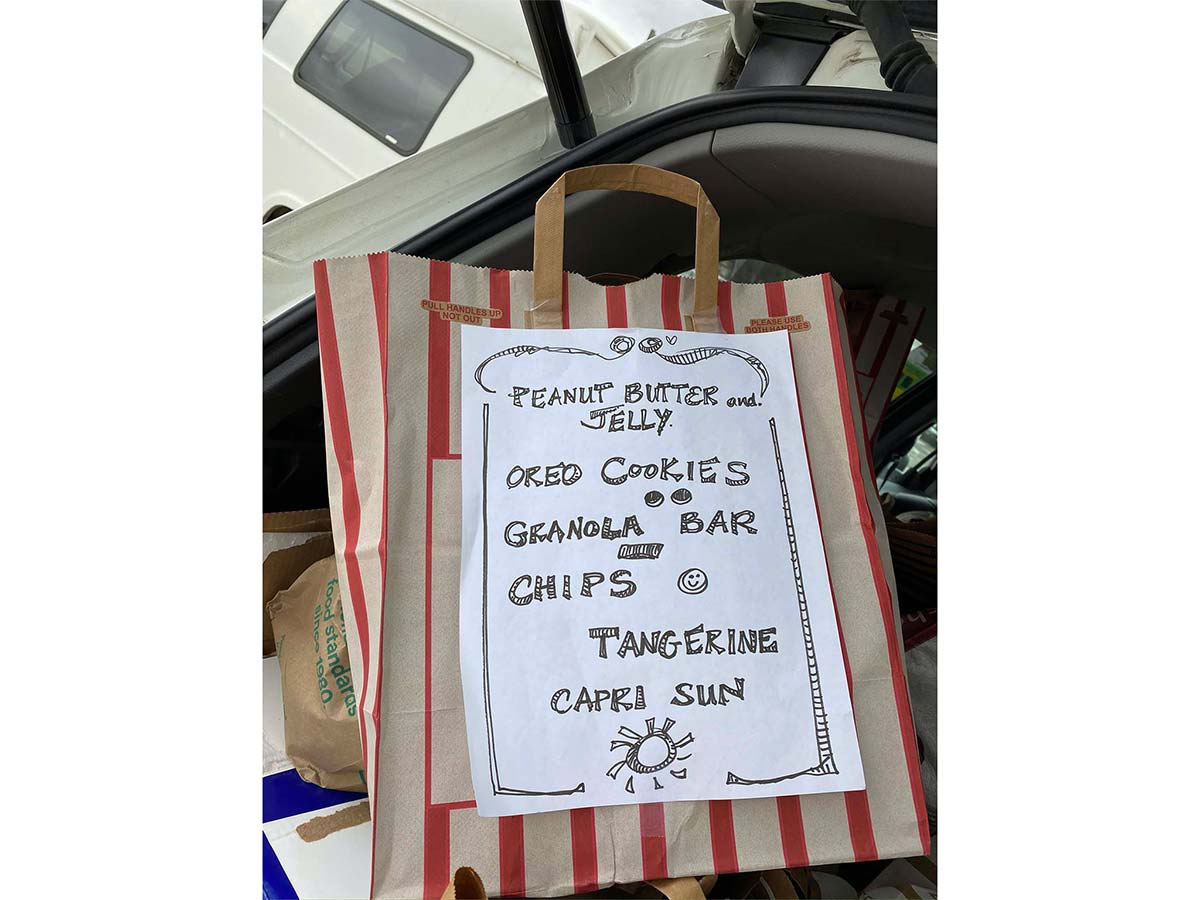 PULL HANDLES UP
NOT OUT
PLEASE USE
BOTH HANDLES
PEANUT BUTTER and.
JELLY.
OREO COOKIES
GRANOLA BAR
CHIPS
TANGERINE
CAPRI SUN
food standards
since 1980